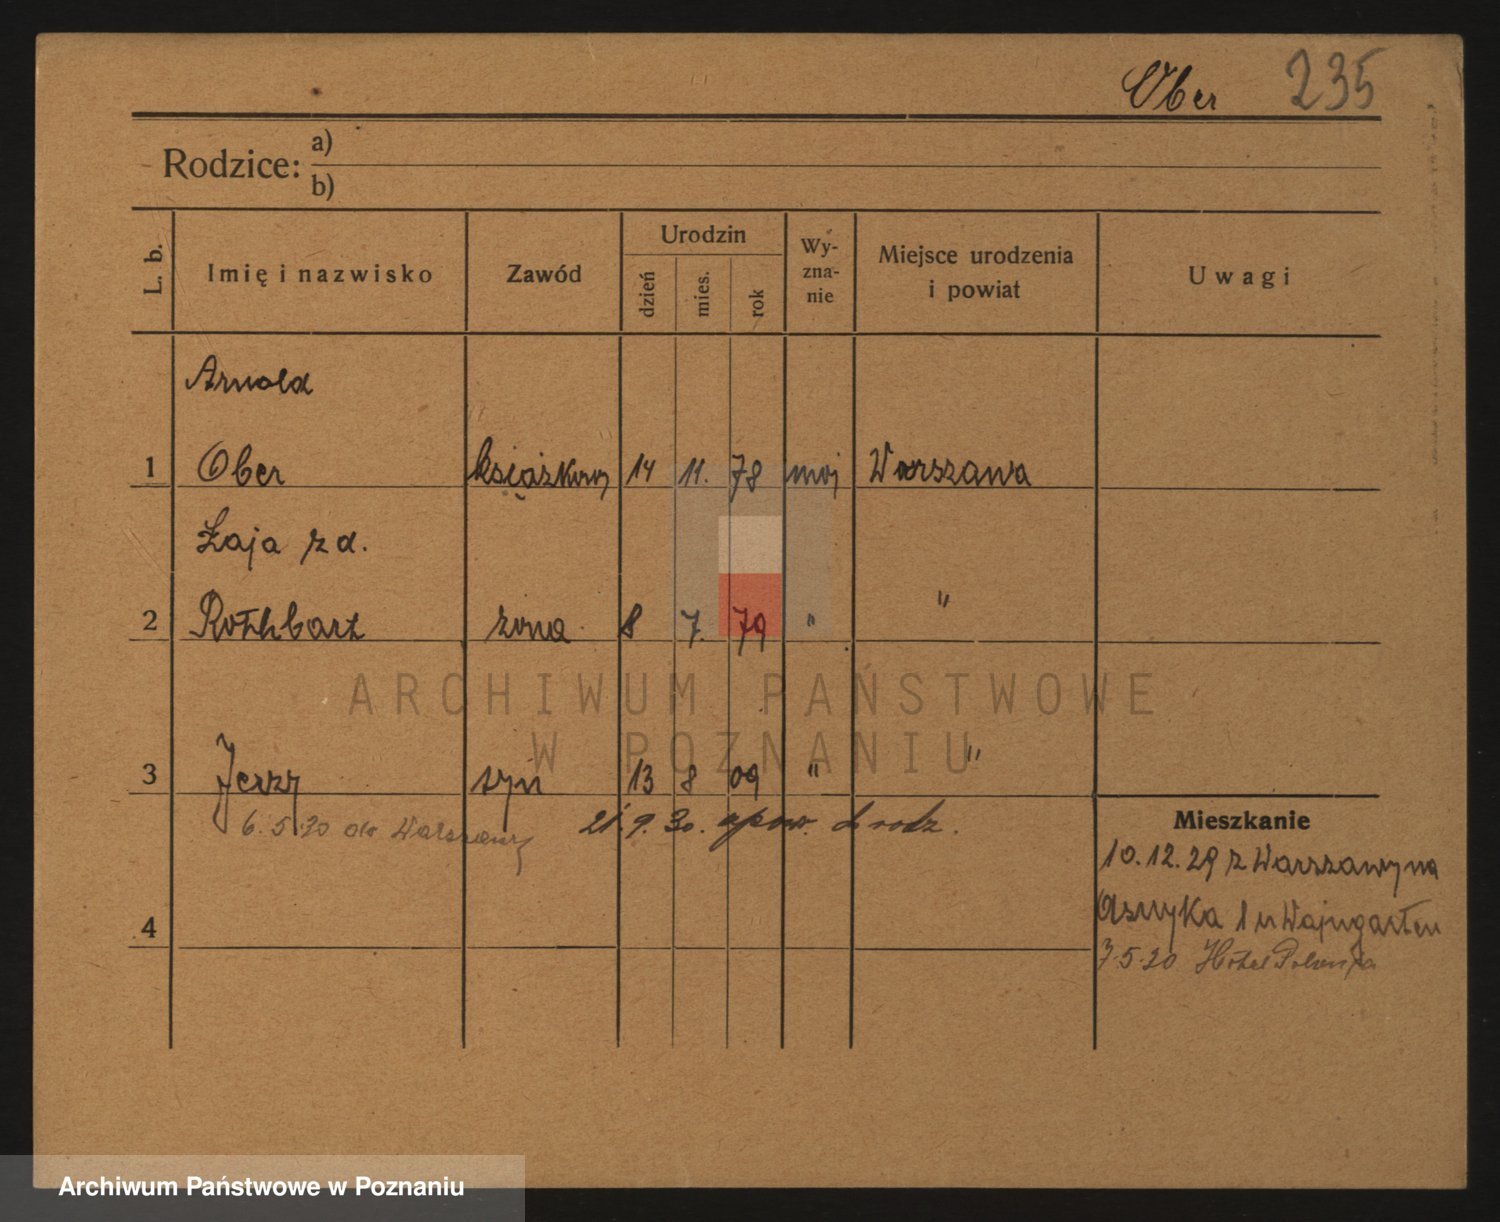 Ober 235
Rodzice: a)
b)
L. b. Imię i nazwisko Zawód Urodzin dzień mies. rok Wy-zna-nie Miejsce urodzenia i powiat Uwagi
Arnold
1 Ober książkowy 14 11. 78 moj Warszawa
Łaja z d.
2 Rothbart żona 8 7. 79 " "
3 Jerzy syn 13 8 09 " "
6.5.30 do Warszawy 21.9.30. do rodz.
Mieszkanie
10.12.29 z Warszawy na
Asnyka 1 u Wajngarten
4
7.5.30 Hotel Polonja
ARCHIWUM PAŃSTWOWE
W POZNANIU
Archiwum Państwowe w Poznaniu